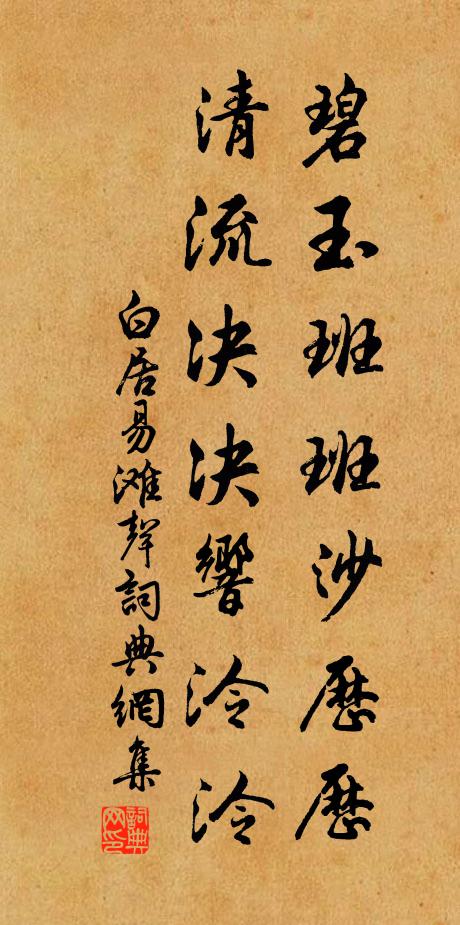 碧玉班班沙歷歷
清流决决響泠泠
白居易滩聲詞典網集
詞典网印